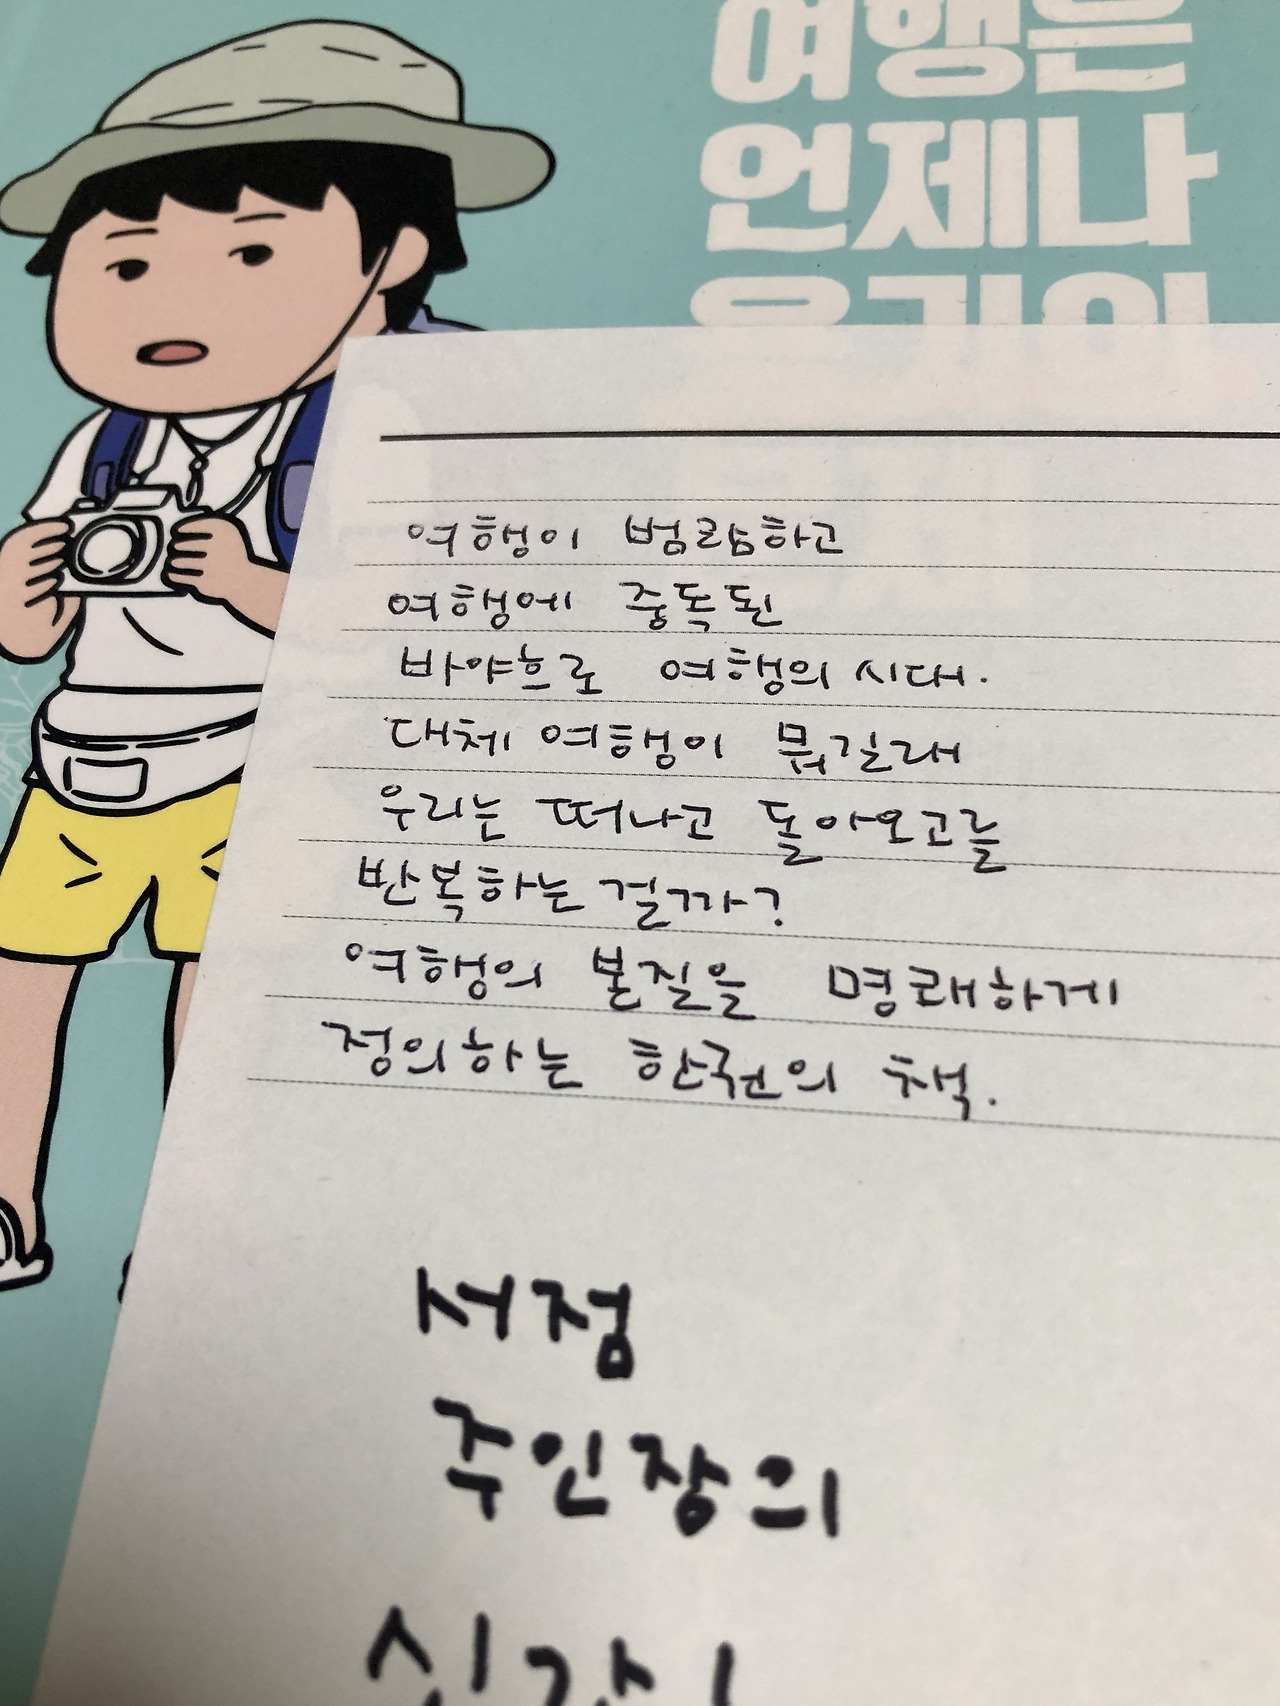 여행은
언제나
용기의
여행이 범람하고
여행에 중독된
바야흐로 여행의 시대.
대체 여행이 뭐길래
우리는 떠나고 돌아오고를
반복하는 걸까?
여행의 본질을 명쾌하게
정의하는 한권의 책.
서점
주인장의